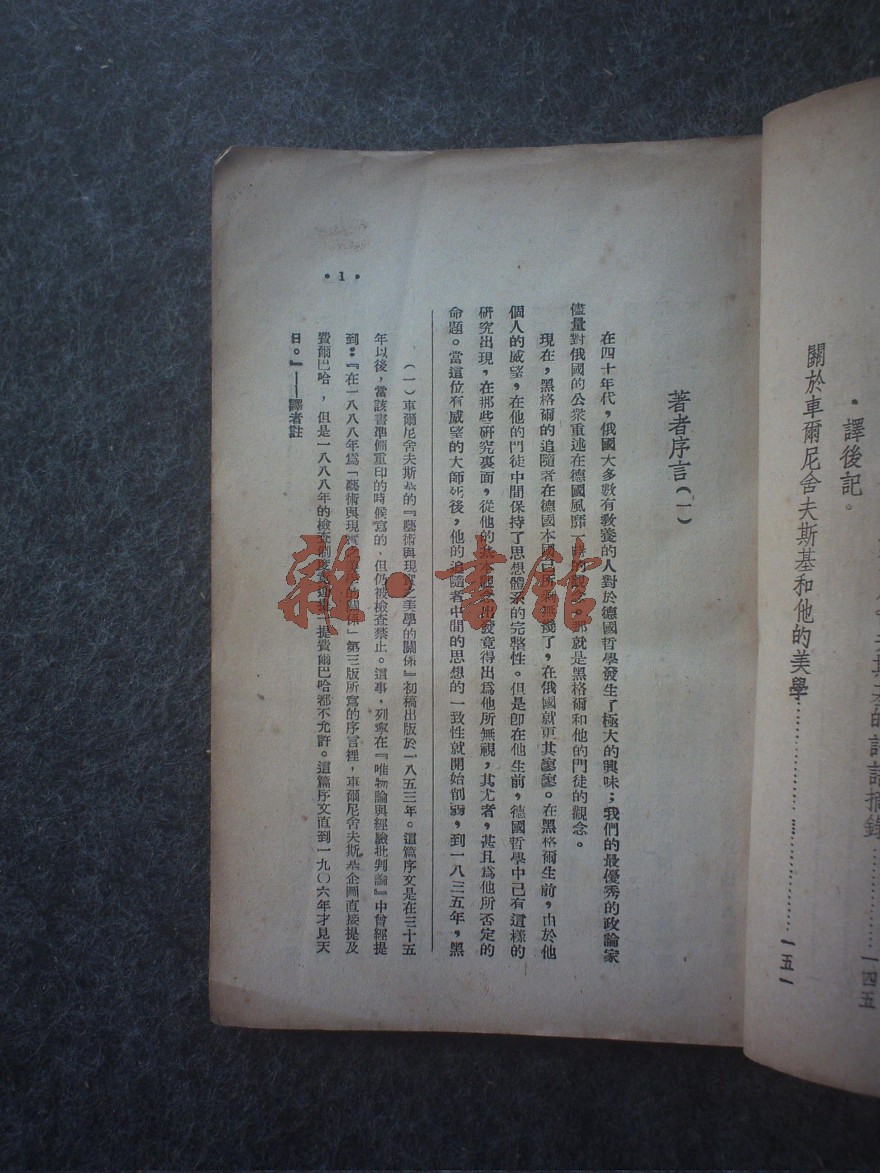 一四五
·譯後記。
關於車爾尼舍夫斯基和他的美學……………………一五一
著者序言(一)
在四十年代,俄國大多數有教養的人對於德國哲學發生了極大的興味;我們的最優秀的政論家
儘量對俄國的公衆重述在德國風靡一時的觀念。那就是黑格爾和他的門徒的觀念。
現在,黑格爾的追隨者在德國本國已所剩無幾了,在俄國就更其寥寥。在黑格爾生前,由於他
個人的威望,在他的門徒中間保持了思想體系的完整性。但是卽在他生前,德國哲學中已有這樣的
研究出現,在那些研究裏面,從他的基本觀念出發竟得出爲他所無視,其尤者,甚且爲他所否定的
命題。當這位有威望的大師死後,他的追隨者中間的思想的一致性就開始削弱,到一八三五年,黑
(一)車爾尼舍夫斯基的『藝術與現實之美學的關係』初稿出版於一八五三年。這篇序文是在三十五
年以後,當該書準備重印的時候寫的、但仍被檢查禁止。這事,列寧在『唯物論與經驗批判論』中曾經提
到:『在一八八八年爲「藝術與現實 的關係」第三版所寫的序言裡,車爾尼舍夫斯基企圖直接提及
費爾巴哈,但是一八八八年的檢查制度 提費爾巴哈都不允許。這篇序文直到一九〇六年才見天
日。』——譯者註
•1•
雜·書館